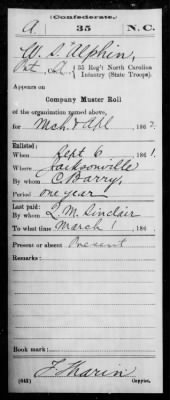 (Confederate.)
A 35 N.C.
W. S. Alphin,
Pvt, Co. A, 35 Reg't North Carolina
Infantry (State Troops).
Appears on
Company Muster Roll
of the organization named above,
for Mch & Apl, 1862.
Enlisted:
When Sept 6, 1861.
Where Jacksonville
By whom C. Barry,
Period one year
Last paid:
By whom Q. M. Sinclair
To what time March 1, 186
Present or absent Present
Remarks:
Book mark:
(642) Copyist.